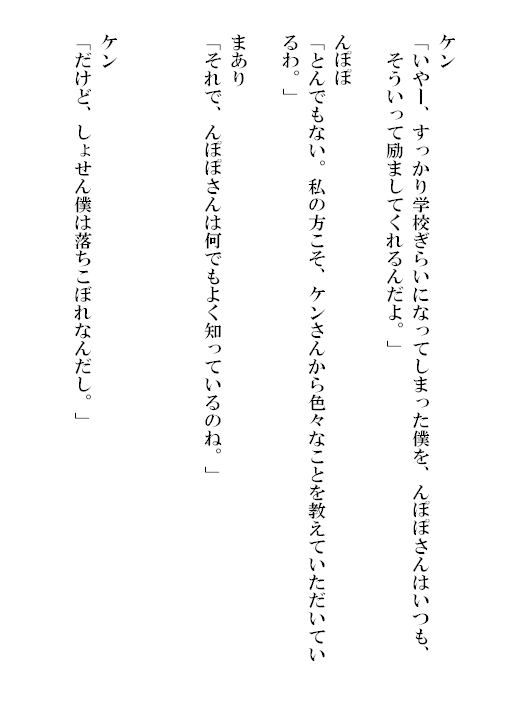 ケン
「いやー、すっかり学校ぎらいになってしまった僕を、んぽぽさんはいつも、
そういって励ましてくれるんだよ。」
んぽぽ
「とんでもない。私の方こそ、ケンさんから色々なことを教えていただいてい
るわ。」
まあり
「それで、んぽぽさんは何でもよく知っているのね。」
ケン
「だけど、しょせん僕は落ちこぼれなんだし。」